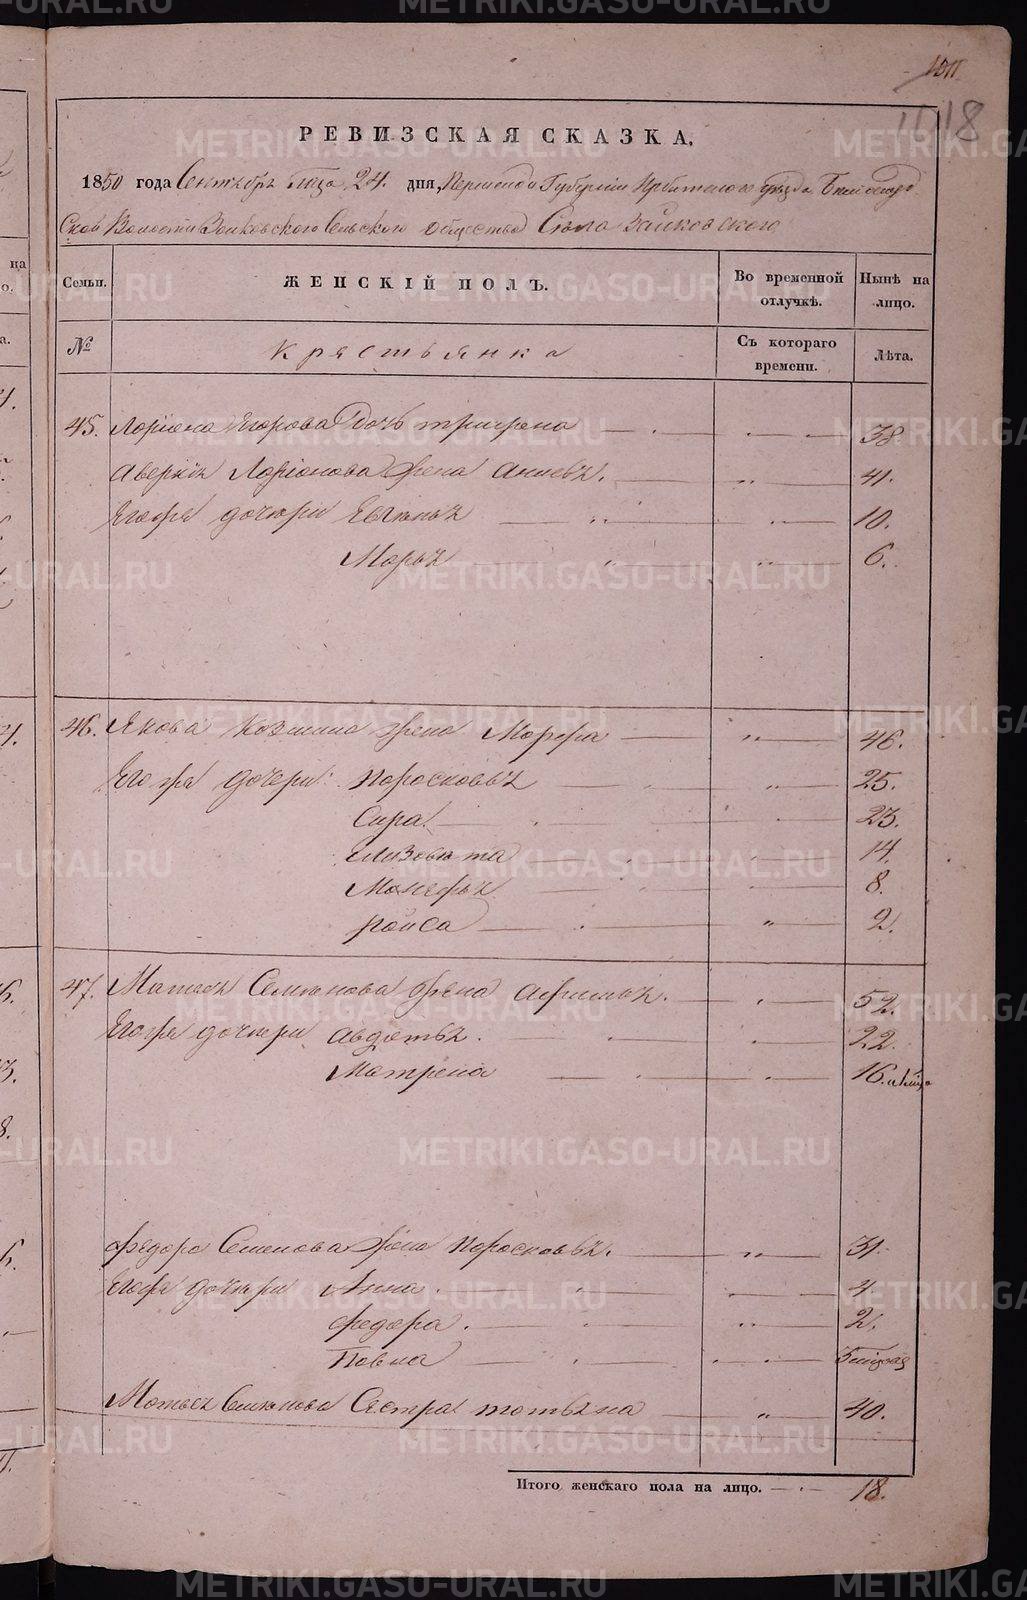 118
РЕВИЗСКАЯ СКАЗКА,
1850 года Сентября мца 24. дня, Пермской Губернии Ирбитского уезда
Волости Зайковского Сельского общества Села Зайковского
Семьи. ЖЕНСКІЙ ПОЛЪ. Во временной отлучкѣ. Нынѣ на лицо.
№ Крестьянка Съ котораго времени. Лѣта.
45. Лоріона Егорова дочь 38
Аверкія Лоріонова жена 41.
Егожя дочери 10.
Марья 6.
46. Якова Козмина жена Марфа 46.
Егожя дочери: Поросковья 25.
Сира 23.
Елизовета 14.
Монефья 8.
Роиса 2.
47. Матвея Семенова жена Афимья. 52.
Егожя дочери Авдотья. 22.
Матрена 16.
Федора Семенова жена Поросковья. 31.
Егожя дочери Анна. 4
Федора. 2.
Повла
Матвея Семенова Сестра Татьяна 40.
Итого женскаго пола на лицо. 18.
METRIKI.GASO-URAL.RU